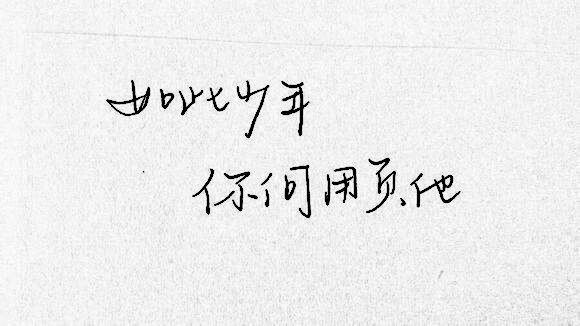 如此少年
你何用负他